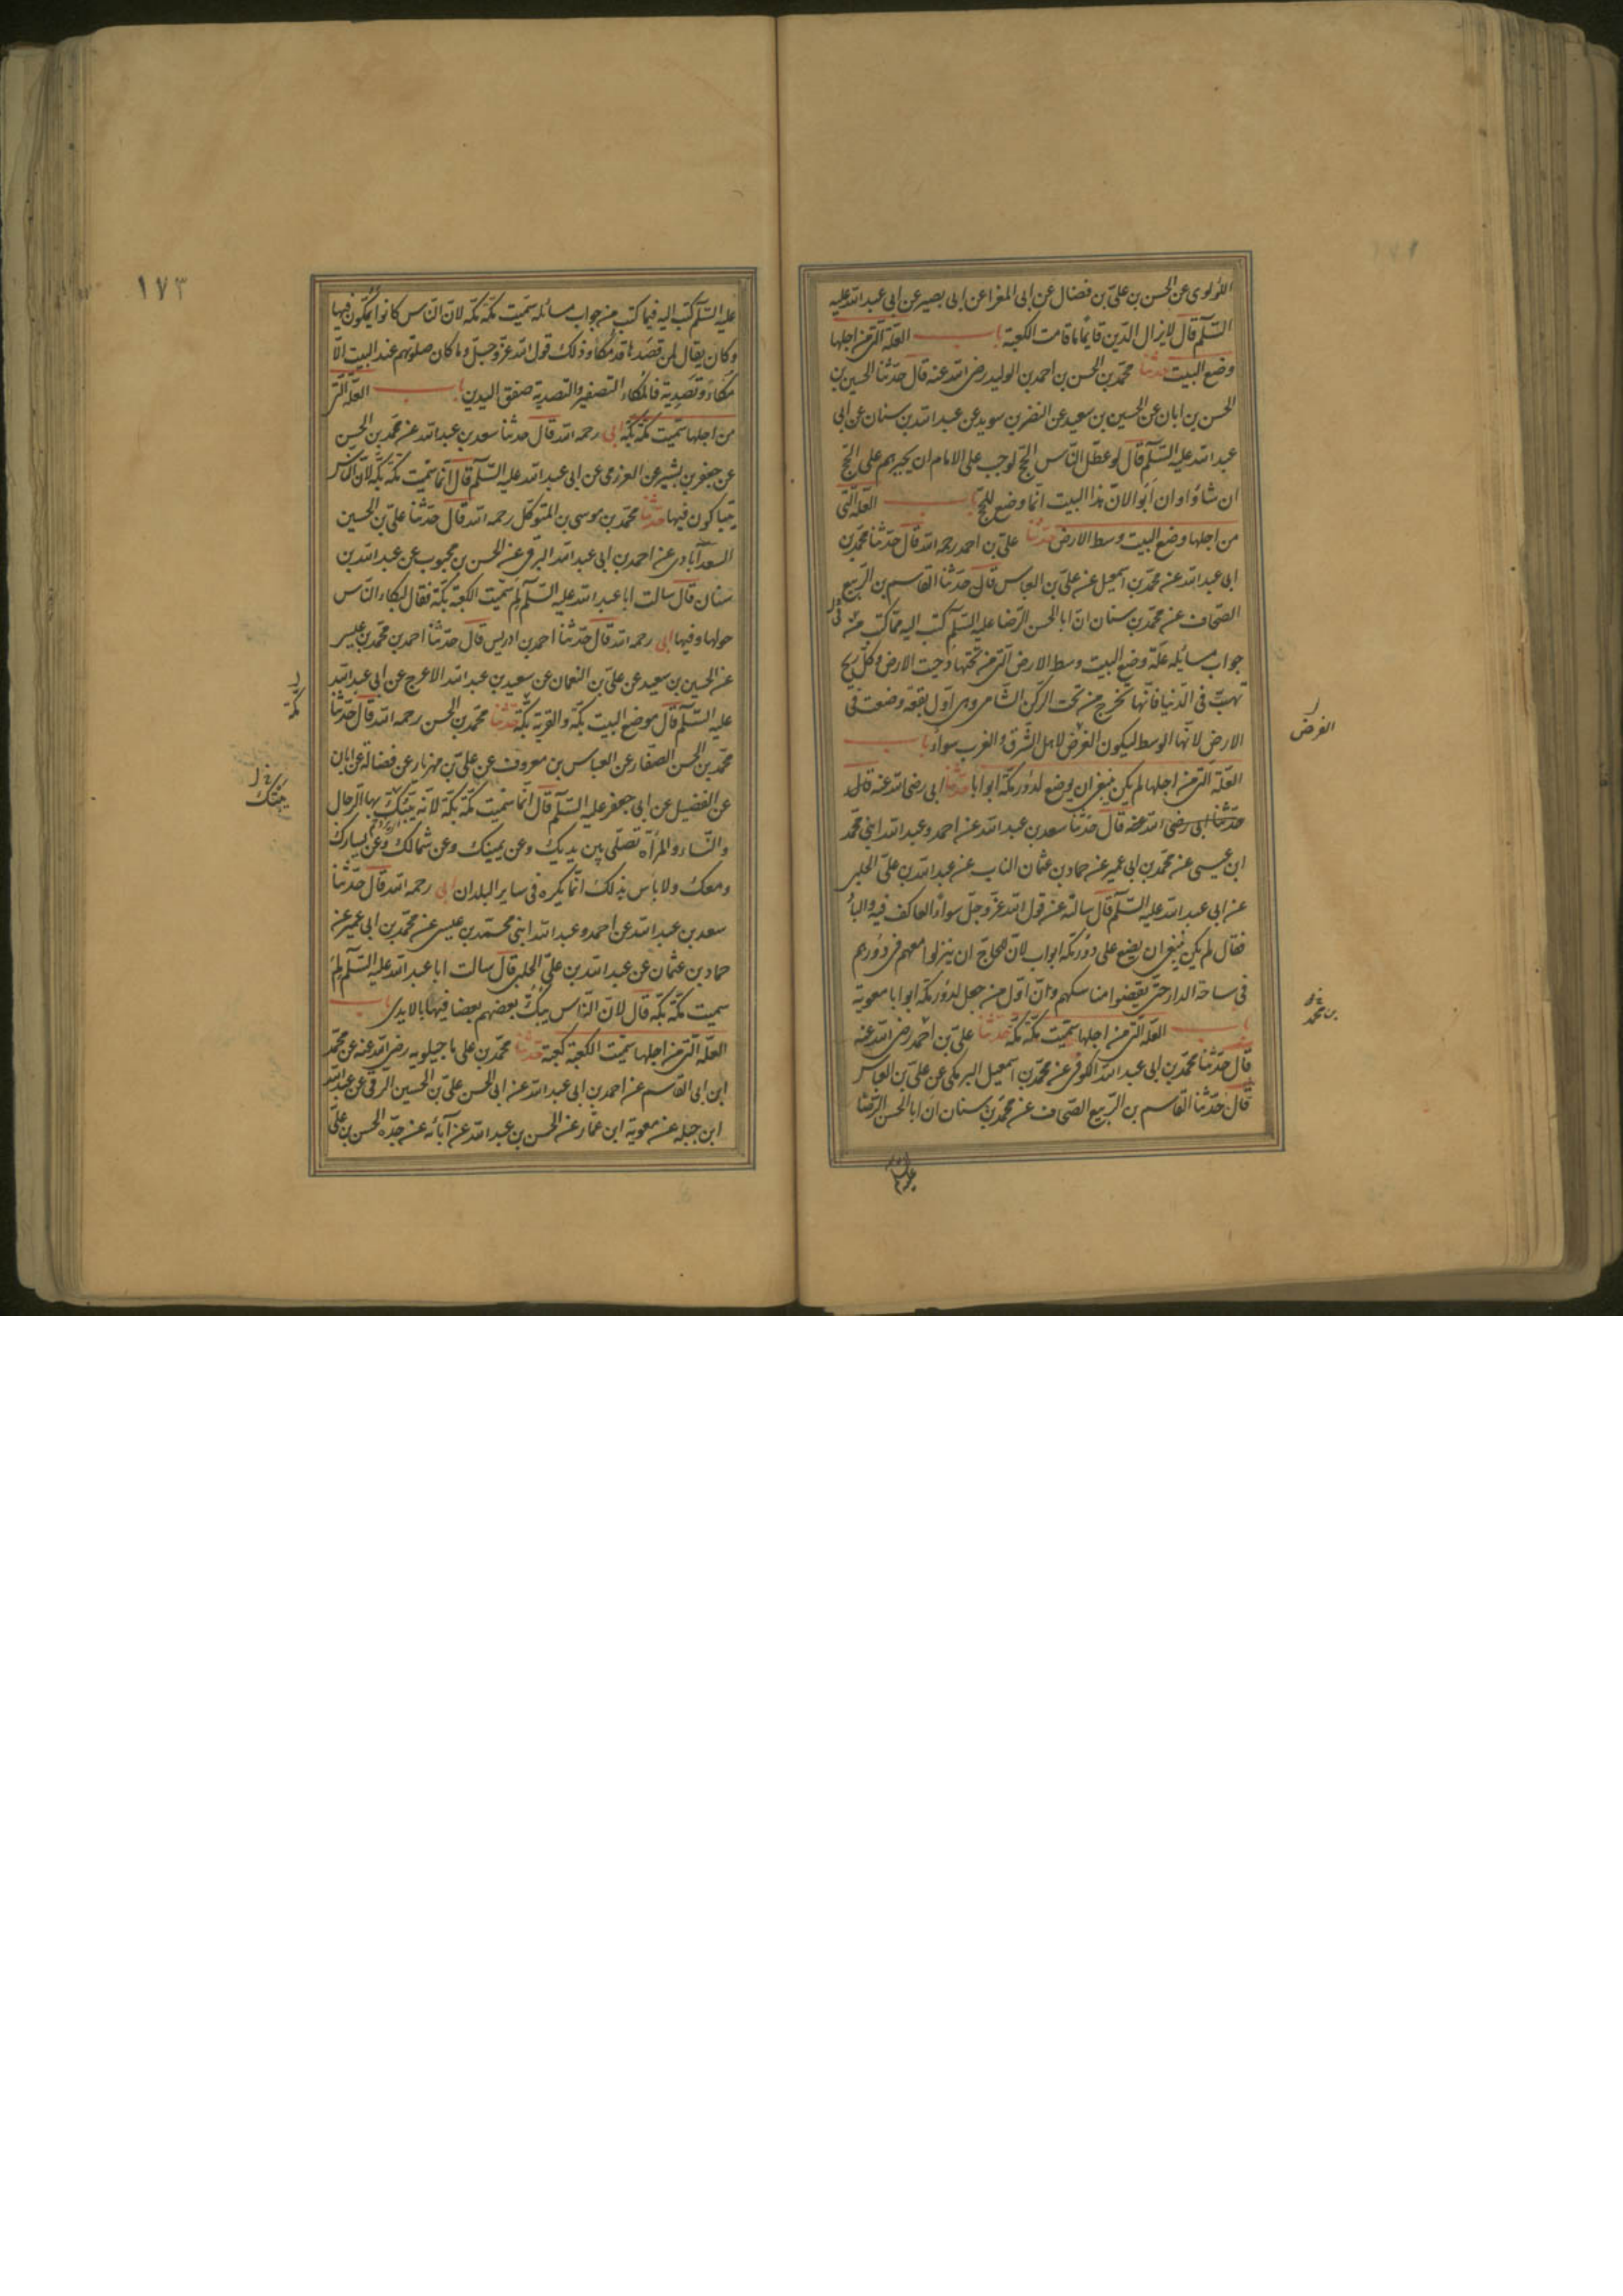 اللؤلوى عن الحسن بن على بن فضال عن ابى المغرا عن ابى بصير عن ابى عبد الله عليه
السلم قال لايزال الدين قايما ماقامت الكعبة باب العلة التى من اجلها
وضع البيت حدثنا محمد بن الحسن بن احمد بن الوليد رضى الله عنه قال حدثنا الحسين بن
الحسن بن ابان عن الحسين بن سعيد عن النضر بن سويد عن عبد الله بن سنان عن ابى
عبد الله عليه السلم قال لو عطل الناس الحج لوجب على الامام ان يجبرهم على الحج
ان شاؤا وان ابوا لان هذا البيت انما وضع للحج باب العلة التى
من اجلها وضع البيت وسط الارض حدثنا على بن احمد رحمه الله قال حدثنا محمد بن
ابى عبد الله عن محمد بن اسمعيل عن على بن العباس قال حدثنا القاسم بن الربيع
الصحاف عن محمد بن سنان ان ابا الحسن الرضا عليه السلم كتب اليه مما كتب من
جواب مسائله علة وضع البيت وسط الارض التى من تحتها دحيت الارض وكل ريح
تهب فى الدنيا فانها تخرج من تحت الركن الشامى وهى اول بقعة وضعت فى
الارض لانها الوسط ليكون الغرض لاهل الشرق والغرب سواء باب
العلة التى من اجلها لم يكن ينبغى ان يوضع لدور مكة ابوابا حدثنا ابى رضى الله عنه قال
حدثنا ابى رضى الله عنه قال حدثنا سعد بن عبد الله عن احمد وعبد الله ابنى محمد
ابن عيسى عن محمد بن ابى عمير عن حماد بن عثمان الناب عن عبد الله بن على الحلبى
عن ابى عبد الله عليه السلم قال سالته عن قول الله عز وجل سواء العاكف فيه والباد
فقال لم يكن ينبغى ان يضع على دور مكة ابواب لان للحاج ان ينزلوا معهم فى دورهم
فى ساحة الدار حتى يقضوا مناسكهم وان اول من جعل لدور مكة ابوابا معوية
باب العلة التى من اجلها سميت مكة مكة حدثنا على بن احمد رضى الله عنه
قال حدثنا محمد بن ابى عبد الله الكوفى عن محمد بن اسمعيل البرمكى عن على بن العباس
قال حدثنا القاسم بن الربيع الصحاف عن محمد بن سنان ان ابا الحسن الرضا
الفرض
بن محمد
عليه السلم
١٧٣
عليه السلم كتب اليه فيما كتب من جواب مسائله سميت مكة مكة لان الناس كانوا يمكون فيها
وكان يقال لمن قصدها قد مكا وذلك قول الله عز وجل وما كان صلوتهم عند البيت الا
مكاء وتصدية فالمكاء التصفير والتصدية صفق اليدين باب العلة التى
من اجلها سميت مكة بكة ابى رحمه الله قال حدثنا سعد بن عبد الله عن محمد بن الحسن
عن جعفر بن بشير عن العزرمى عن ابى عبد الله عليه السلم قال انما سميت مكة بكة لان الناس
يتباكون فيها حدثنا محمد بن موسى بن المتوكل رحمه الله قال حدثنا على بن الحسين
السعدآبادى عن احمد بن ابى عبد الله البرقى عن الحسن بن محبوب عن عبد الله بن
سنان قال سالت ابا عبد الله عليه السلم لم سميت الكعبة بكة فقال لبكاء الناس
حولها وفيها ابى رحمه الله قال حدثنا احمد بن ادريس قال حدثنا احمد بن محمد بن عيسى
عن الحسين بن سعيد عن على بن النعمان عن سعيد بن عبد الله الاعرج عن ابى عبد الله
عليه السلم قال موضع البيت بكة والقرية بكة حدثنا محمد بن الحسن رحمه الله قال حدثنا
محمد بن الحسن الصفار عن العباس بن معروف عن على بن مهزيار عن فضالة عن ابان
عن الفضيل عن ابى جعفر عليه السلم قال انما سميت مكة بكة لانه يبتك بها الرجال
والنساء والمرأة تصلى بين يديك وعن يمينك وعن شمالك وعن يسارك
ومعك ولاباس بذلك انما يكره فى ساير البلدان ابى رحمه الله قال حدثنا
سعد بن عبد الله عن احمد و عبد الله ابنى محمد بن عيسى عن محمد بن ابى عمير عن
حماد بن عثمان عن عبد الله بن على الحلبى قال سالت ابا عبد الله عليه السلم لم
سميت مكة بكة قال لان الناس يبك بعضهم بعضا فيها بالايدى باب
العلة التى من اجلها سميت الكعبة كعبة حدثنا محمد بن على ماجيلويه رضى الله عنه عن محمد
ابن ابى القاسم عن احمد بن ابى عبد الله عن ابى الحسن على بن الحسين الرقى عن عبد الله
ابن جبله عن معوية ابن عمار عن الحسن بن عبد الله عن آبائه عن جده الحسن بن على
مكة
يبتك